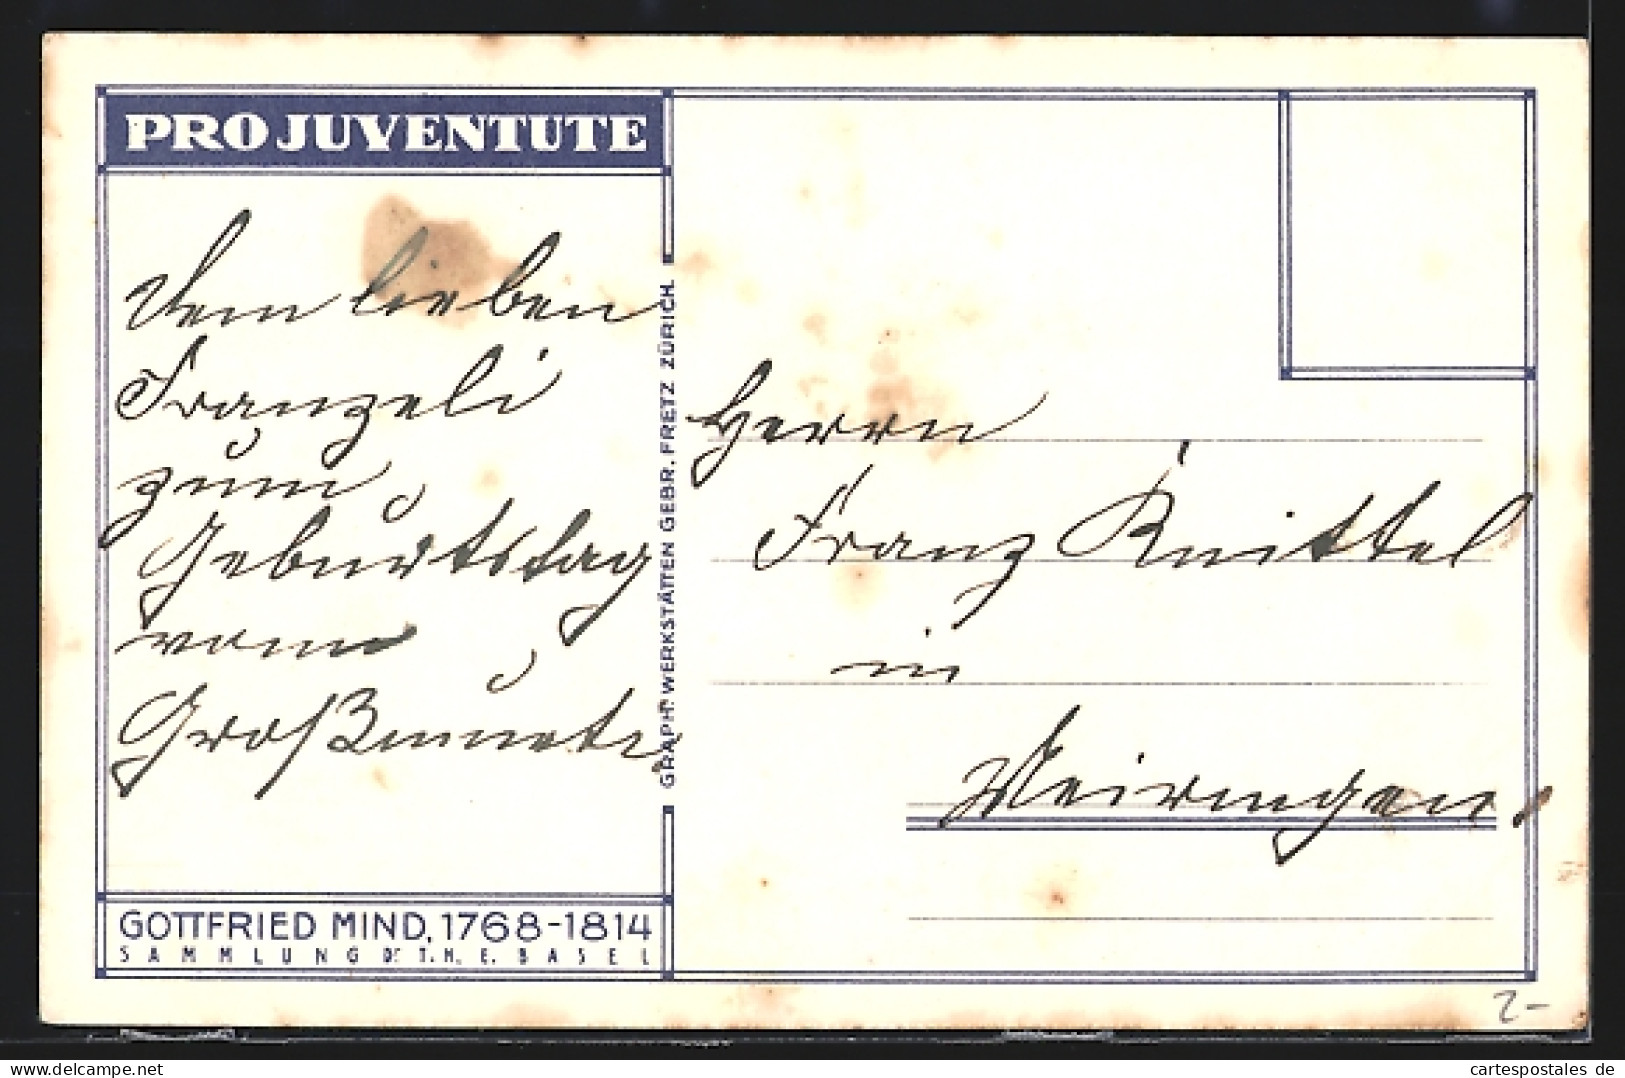 PRO JUVENTUTE
Dem lieben
Franzeli
zum
Geburtstag
vom
GRAPH. WERKSTÄTTEN GEBR. FRETZ ZÜRICH.
Herrn
Franz Knittel
in
Meiringen.
GOTTFRIED MIND, 1768-1814
SAMMLUNG Dr T. H. E. BASEL
2-
cartespostales de